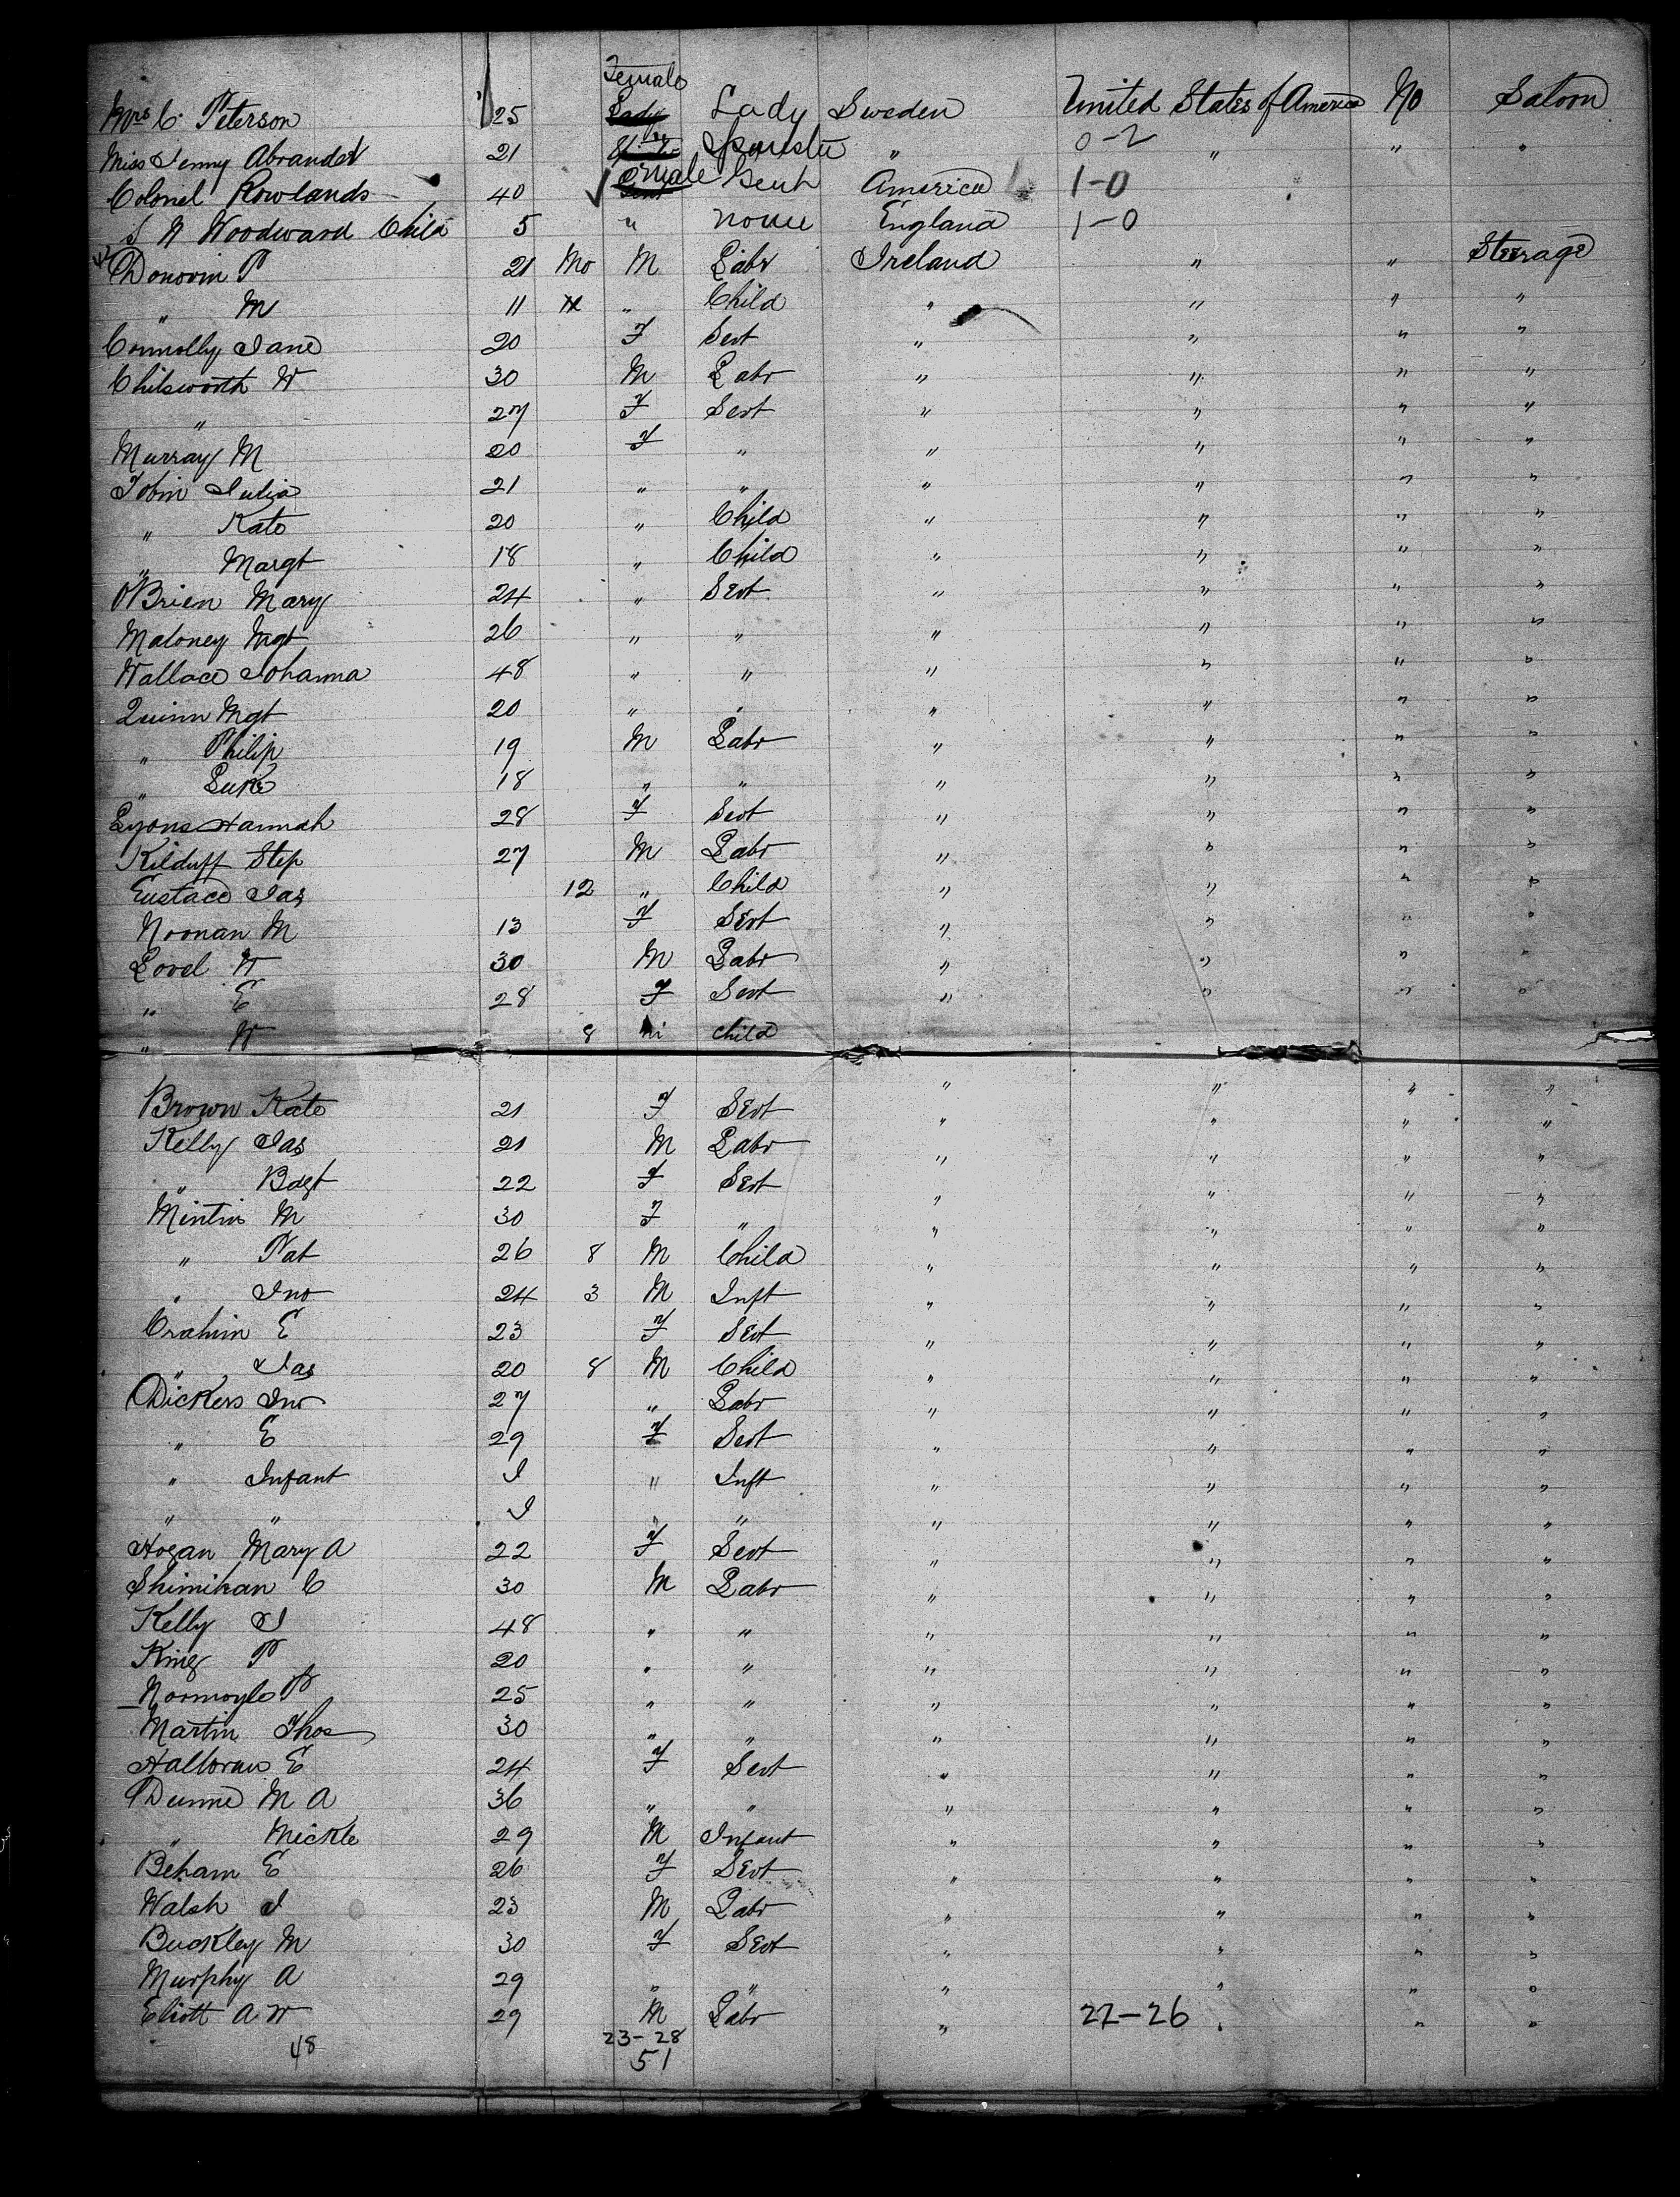 Female
Mrs C. Peterson 25 Lady Lady Sweden United States of America No Saloon
Miss Jenny 21 Spinster " 0-2 " " "
Colonel Rowlands 40 male Gent America 1-0
S W Woodward Child 5 " none England 1-0
Donovin P 21 Mo M Labr Ireland " " Steerage
" M 11 " Child " " " "
Connolly Jane 20 F Sevt " " " "
Chilsworth W 30 M Labr " " " "
" 27 F Sevt " " " "
Murray M 20 F " " " " "
Tobin Julia 21 " " " " " "
" Kate 20 " Child " " " "
" Margt 18 " Child " " " "
O'Brien Mary 24 " Sevt " " " "
Maloney Mgt 26 " " " " " "
Wallace Johanna 48 " " " " " "
Quinn Mgt 20 " " " " " "
" Philip 19 M Labr " " " "
" Luke 18 " " " " " "
Lyons Hannah 28 F Sevt " " " "
Kilduff Step 27 M Labr " " " "
Eustace Jas 12 " Child " " " "
Noonan M 13 F Sevt " " " "
Lovel W 30 M Labr " " " "
" E 28 F Sevt " " " "
" W 8 m child " " " "
Brown Kate 21 F Sevt " " " "
Kelly Jas 21 M Labr " " " "
" Bdgt 22 F Sevt " " " "
Mintin M 30 F " " " " "
" Pat 26 8 M Child " " " "
" Jno 24 3 M Inft " " " "
Crahim E 23 F Sevt " " " "
" Jas 20 8 M Child " " " "
Dickers Jno 27 " Labr " " " "
" E 29 F Sevt " " " "
" Infant I " Inft " " " "
" " I " " " " " "
Hogan Mary A 22 F Sevt " " " "
Shimihan C 30 M Labr " " " "
Kelly J 48 " " " " " "
King P 20 " " " " " "
Normoyle P 25 " " " " " "
Martin Thos 30 " " " " " "
Halloran E 24 F Sevt " " " "
Dunne M A 36 " " " " " "
" Mickle 29 M Infant " " " "
Beham E 26 F Sevt " " " "
Walsh J 23 M Labr " " " "
Buckley M 30 F Sevt " " " "
Murphy A 29 " " " " " "
Eliott A W 29 M Labr " 22-26 " " "
48 23-28
51